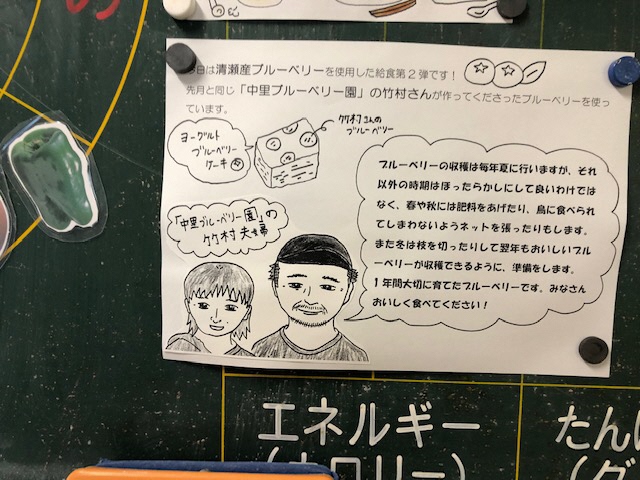 日は清瀬産ブルーベリーを使用した給食第2弾です！
先月と同じ「中里ブルーベリー園」の竹村さんが作ってくださったブルーベリーを使っ
ています。
竹村さんの
ブルーベリー
ヨーグルト
ブルーベリー
ケーキ
「中里ブルーベリー園」の
竹村夫婦
ブルーベリーの収穫は毎年夏に行いますが、それ
以外の時期はほったらかしにして良いわけでは
なく、春や秋には肥料をあげたり、鳥に食べられ
てしまわないようネットを張ったりもします。
また冬は枝を切ったりして翌年もおいしいブル
ーベリーが収穫できるように、準備をします。
１年間大切に育てたブルーベリーです。みなさん
おいしく食べてください！
エネルギー
（カロリー）
たんぱ
（グ